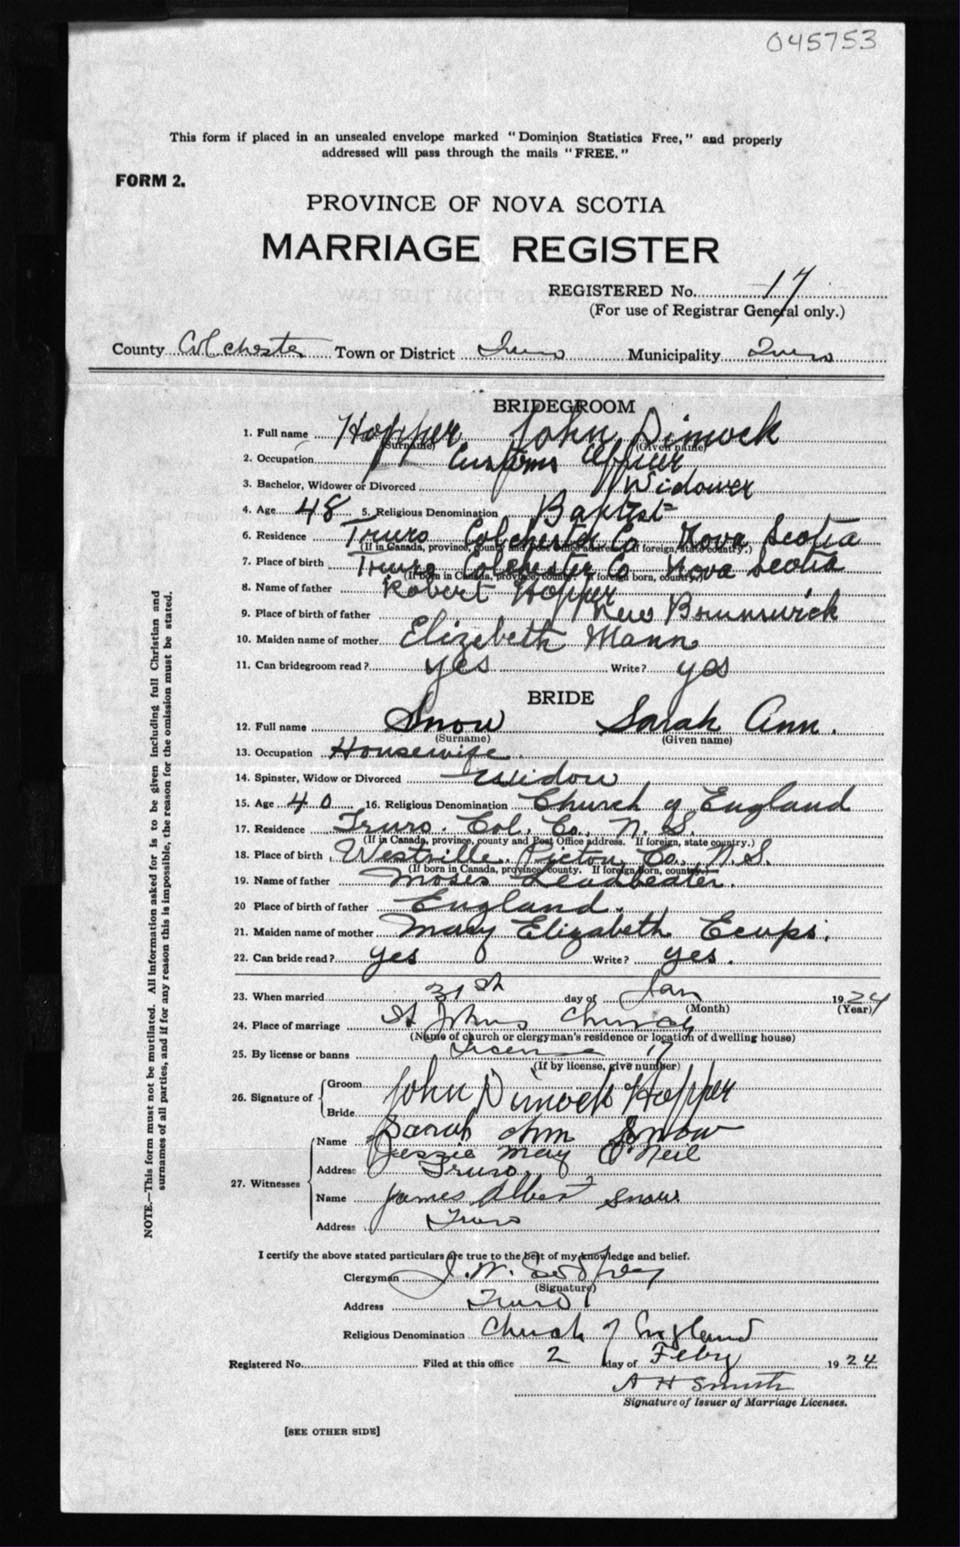 045753
This form if placed in an unsealed envelope marked "Dominion Statistics Free," and properly
addressed will pass through the mails "FREE."
FORM 2.
PROVINCE OF NOVA SCOTIA
MARRIAGE REGISTER
REGISTERED No. 17
(For use of Registrar General only.)
County Colchester Town or District Truro Municipality Truro
BRIDEGROOM
1. Full name Hopper John Dimock
(Surname) (Given name)
2. Occupation Customs Officer
3. Bachelor, Widower or Divorced Widower
4. Age 48 5. Religious Denomination Baptist
6. Residence Truro Colchester Co Nova Scotia
(If in Canada, province, county and Post Office address. If foreign, state country.)
7. Place of birth Truro Colchester Co Nova Scotia
(If born in Canada, province, county. If foreign born, country.)
8. Name of father Robert Hopper
9. Place of birth of father New Brunswick
10. Maiden name of mother Elizebeth Mann
11. Can bridegroom read? yes Write? yes
BRIDE
12. Full name Snow Sarah Ann.
(Surname) (Given name)
13. Occupation Housewife
14. Spinster, Widow or Divorced Widow
15. Age 40 16. Religious Denomination Church of England
17. Residence Truro. Col. Co., N. S.
(If in Canada, province, county and Post Office address. If foreign, state country.)
18. Place of birth Westville, Pictou Co., N.S.
(If born in Canada, province county. If foreign born, country.)
19. Name of father Moses Leadbeater.
20 Place of birth of father England.
21. Maiden name of mother Mary Elizabeth
22. Can bride read? yes Write? yes.
23. When married 31st day of Jan 1924
(Month) (Year)
24. Place of marriage St Johns Church
(Name of church or clergyman's residence or location of dwelling house)
25. By license or banns License 17
(If by license, give number)
26. Signature of Groom John Dimock Hopper
Bride Sarah Ann Snow
27. Witnesses Name Jessie May O'Neil
Address Truro
Name James Albert Snow
Address Truro
I certify the above stated particulars are true to the best of my knowledge and belief.
Clergyman J. W. Godfrey
(Signature)
Address Truro
Religious Denomination Church of England
Registered No. Filed at this office 2 day of Feby 1924
A H Smith
Signature of Issuer of Marriage Licenses.
[SEE OTHER SIDE]
NOTE.—This form must not be mutilated. All information asked for is to be given including full Christian and
surnames of all parties, and if for any reason this is impossible, the reason for the omission must be stated.